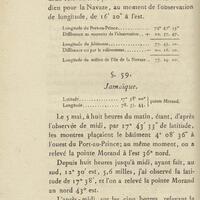 dien pour la Navaze, au moment de l'observation
de longitude, de 16' 20" à l'est.
Longitude du Port-au-Prince
Différence au moment de l'observation
Longitude du bâtiment
Différence est par le relèvement
Longitude du milieu de l'île de la Navaze
§. 59.
Jamaïque.
Latitude 17° 58' 00"
Longitude 78. 35. 45
pointe Morand.
Le 5 mai, à huit heures du matin, étant, d'après
l'observée de midi, par 17° 43' 33" de latitude,
les montres plaçoient le bâtiment 4° 08' 36" à
l'ouest du Port-au-Prince; au même moment, on a
relevé la pointe Morand à l'est 36° nord.
Depuis huit heures jusqu'à midi, ayant fait, au
sud, 12° 30' est, 5,6 milles, j'ai observé la lati-
tude de 17° 38', et l'on a relevé la pointe Morand
au nord 43° est.
L'après-midi, sur les cinq heures, relevant la